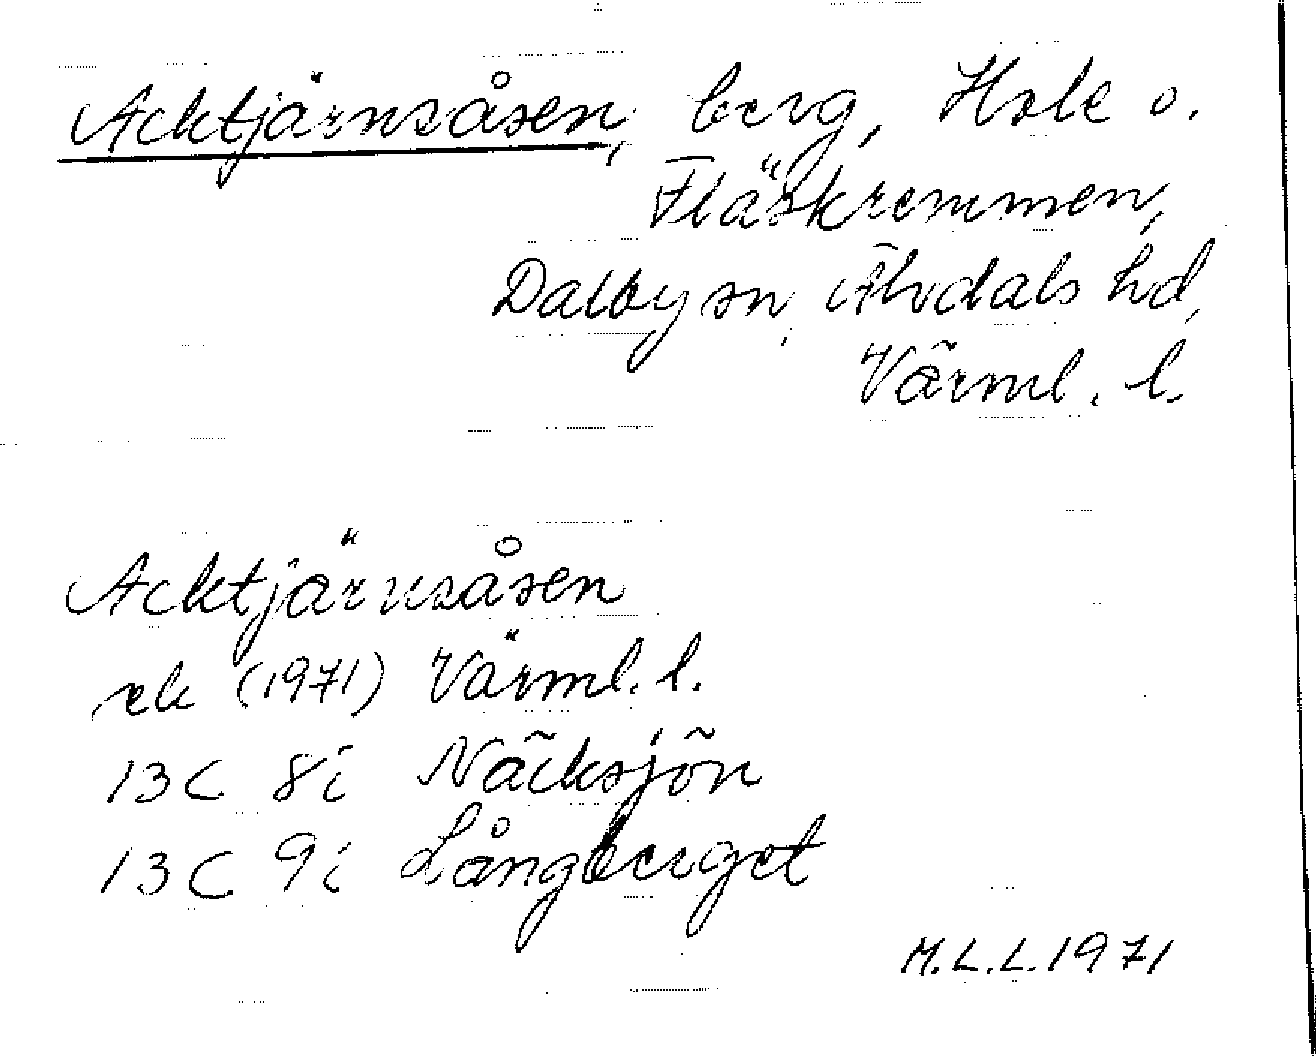 Acktjärnsåsen, berg, Hole o.
Fläskremmen,
Dalby sn, Älvdals hd,
Värml. l.
Acktjärnsåsen
ek (1971) Värml. l.
13C 8i Näcksjön
13C 9i Långberget
M.L.L. 1971